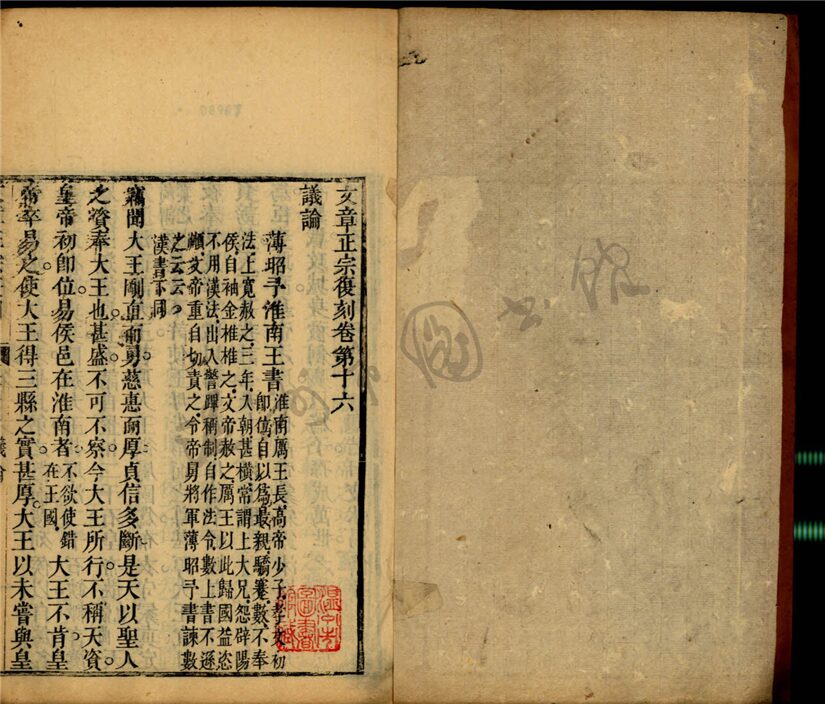 文章正宗復刻卷第十六
議論
薄昭予淮南王書淮南厲王長高帝少子孝文初
即位自以為最親驕蹇數不奉
法上寬赦之三年入朝甚横常謂上大兄怨辟陽
侯自袖金椎椎之文帝赦之厲王以此歸國益恣
不用漢法出入警蹕稱制自作法令數上書不遜
順文帝重自切責之令帝舅將軍薄昭予書諫數
之云云
漢書下同
竊聞大王剛直而勇慈惠而厚貞信多斷是天以聖人
之資奉大王也甚盛不可不察今大王所行不稱天資
皇帝初即位易侯邑在淮南者不欲使錯在王國大王不肯皇
帝卒易之使大王得三縣之實甚厚大王以未嘗與皇